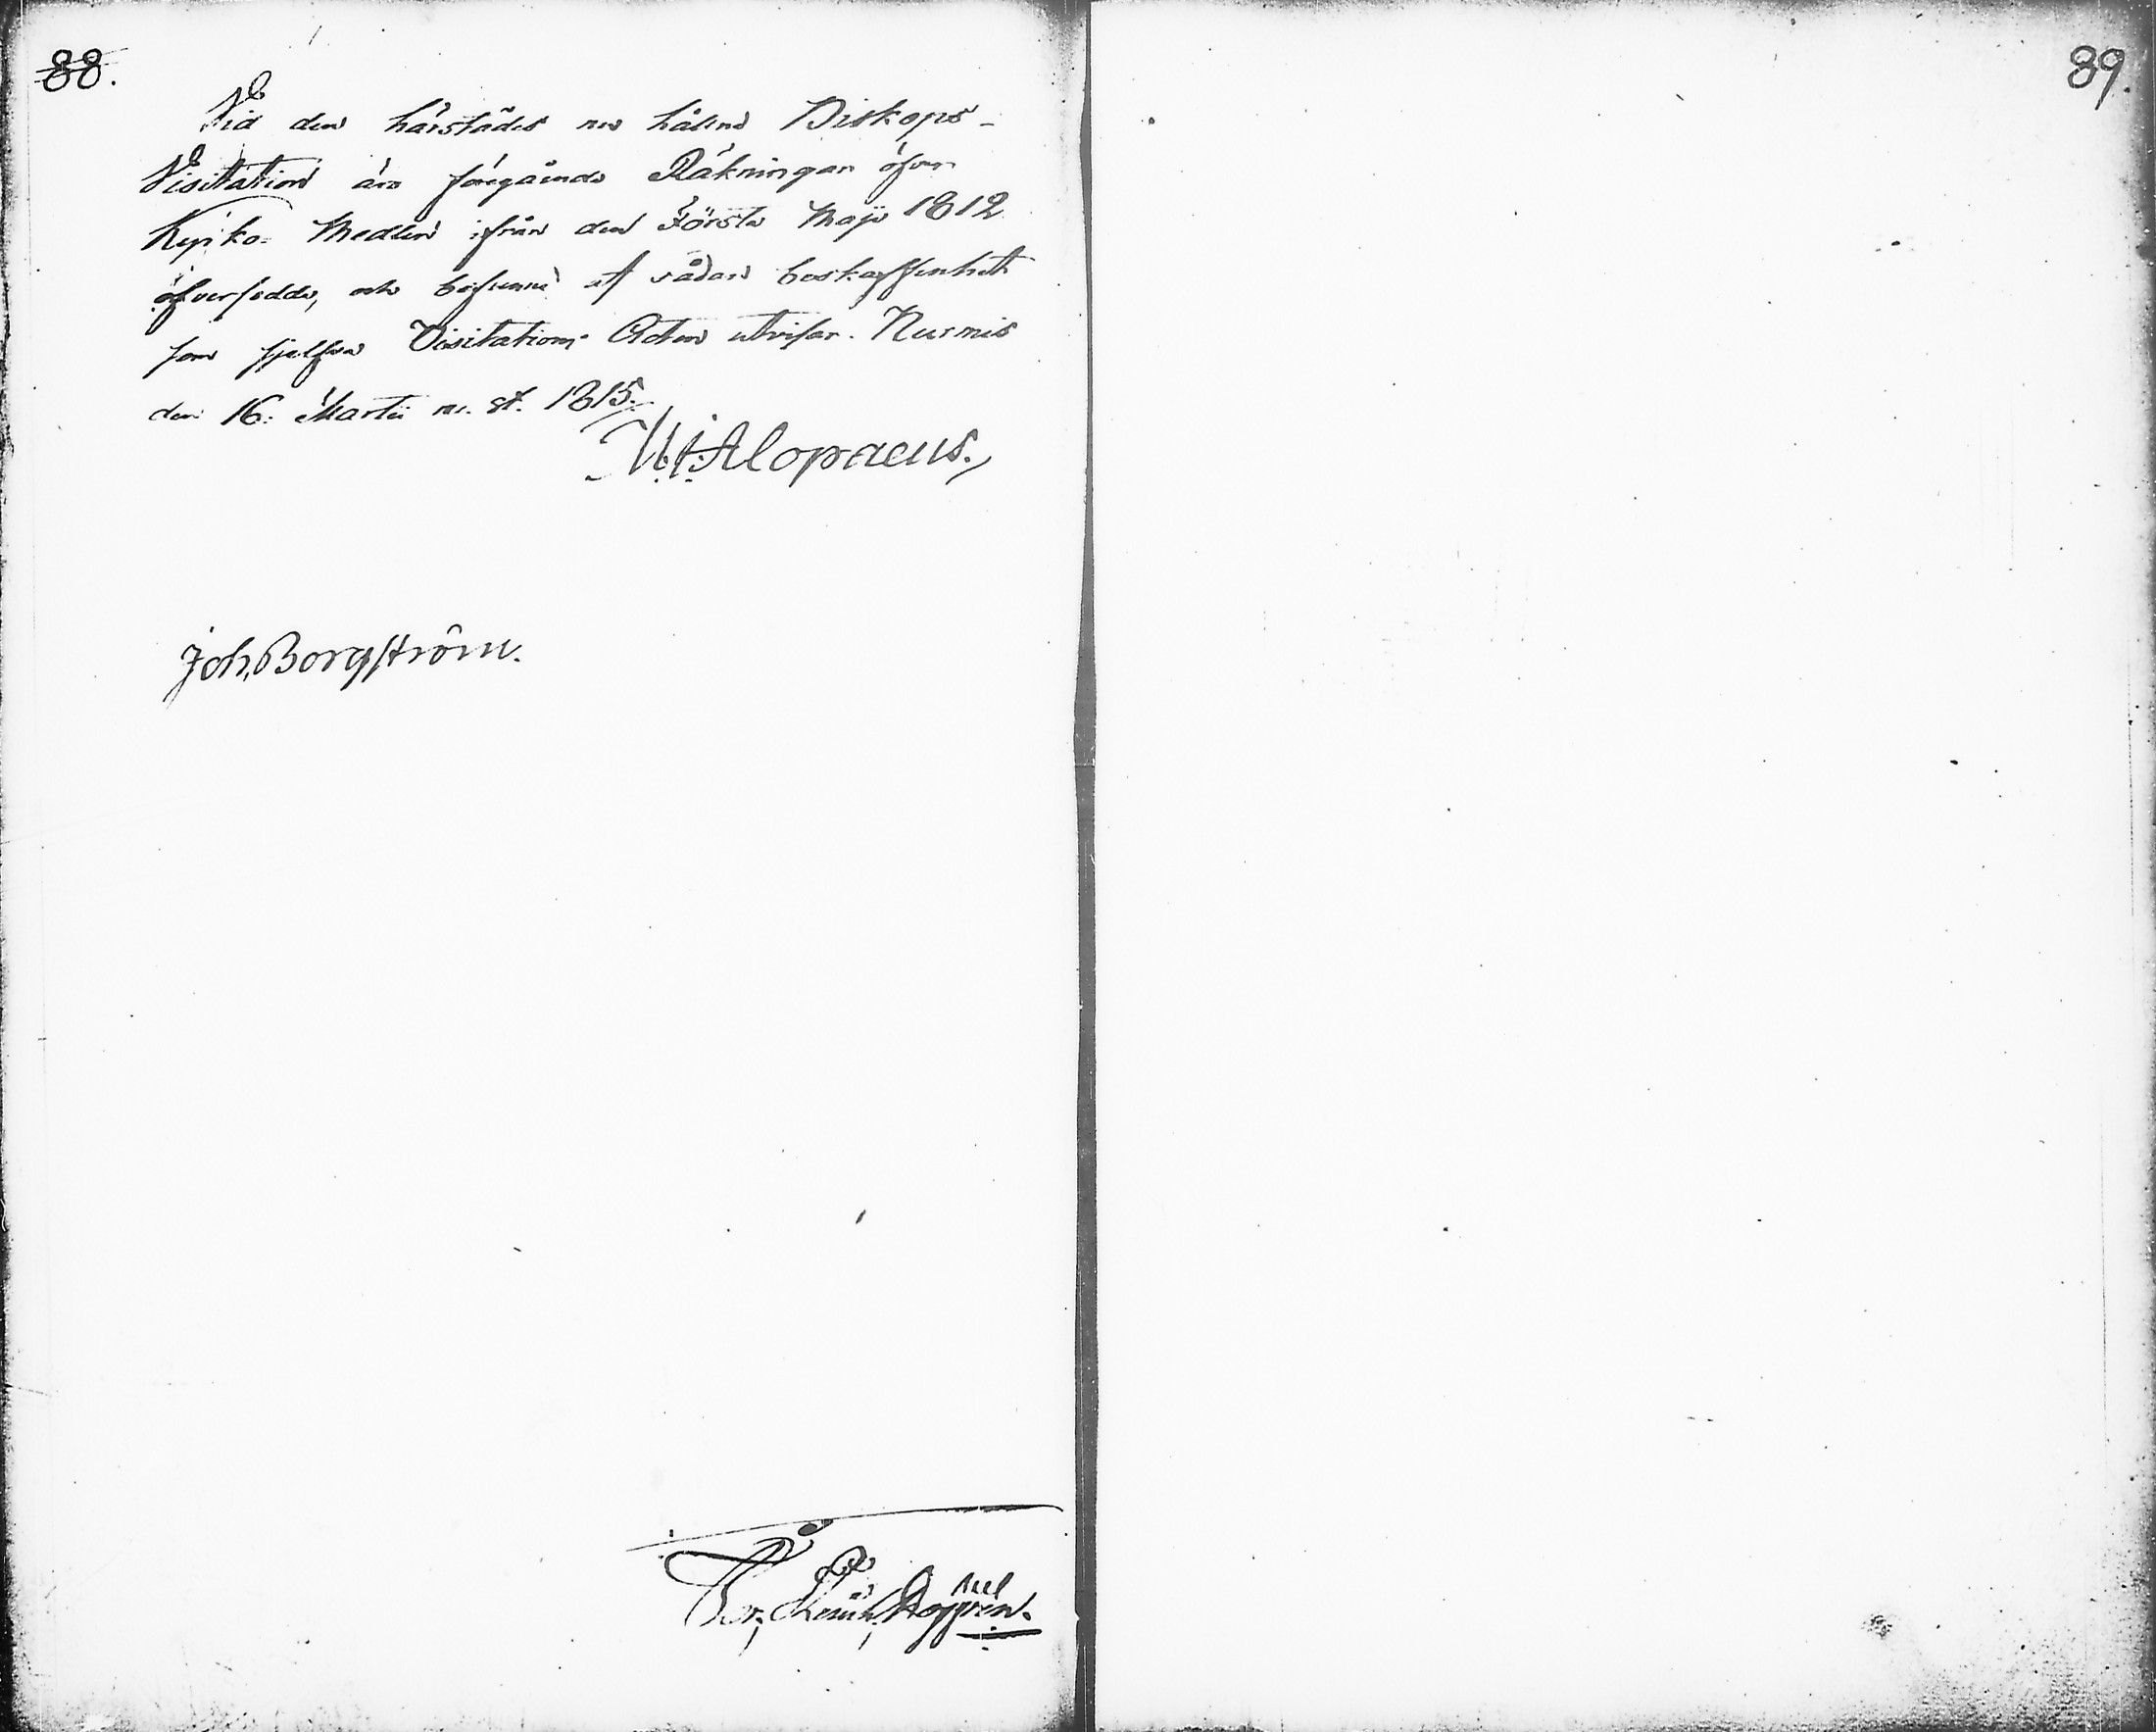 88.
Vid den härstädes nu hållne Biskops-
Visitation äro föregående Räkningar öfver
Kyrko- Medlen ifrån den Första Maji 1812
öfversedde, och befunne af sådan beskaffenhet
som sjelfva Visitations Acten utvisar. Nurmis
den 16. Martii n. st. 1815.
M. J. Alopaeus.
Joh. Borgström.
89.